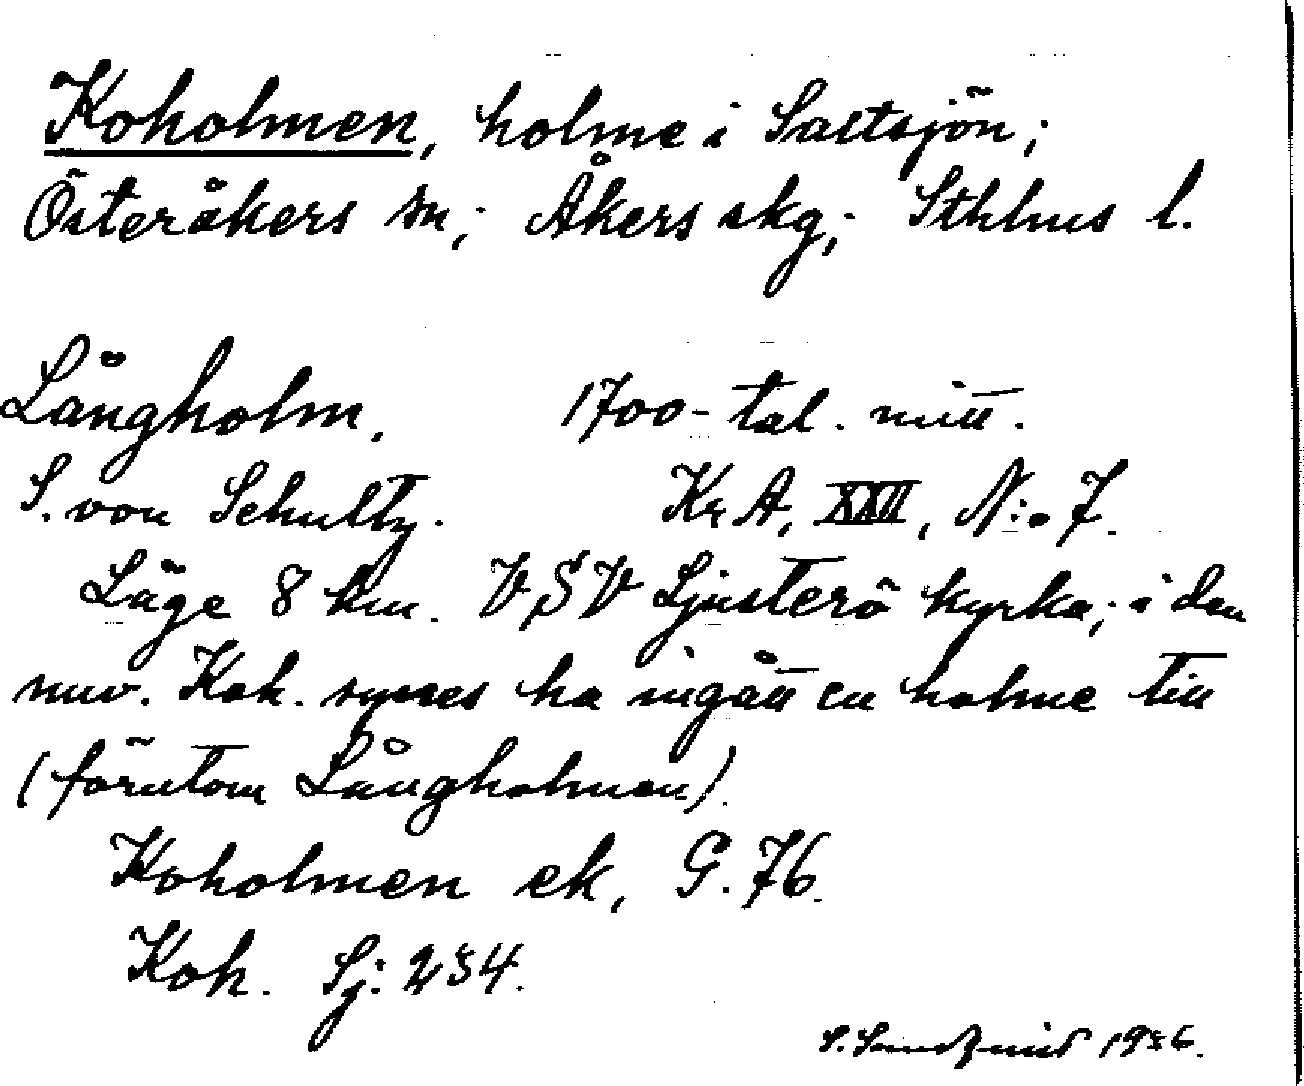 Koholmen, holme i Saltsjön;
Österåkers sn; Åkers skg; Sthlms l.
Långholm. 1700-tal. mitt.
S. von Schultz. Kr A, XXII, N:o 7.
Läge 8 km. VSV Ljusterö kyrka; i den
nuv. Koh. synes ha ingått en holme till
(förutom Långholmen).
Koholmen ek, G. 76.
Koh. Sj: 234.
S. 1936.